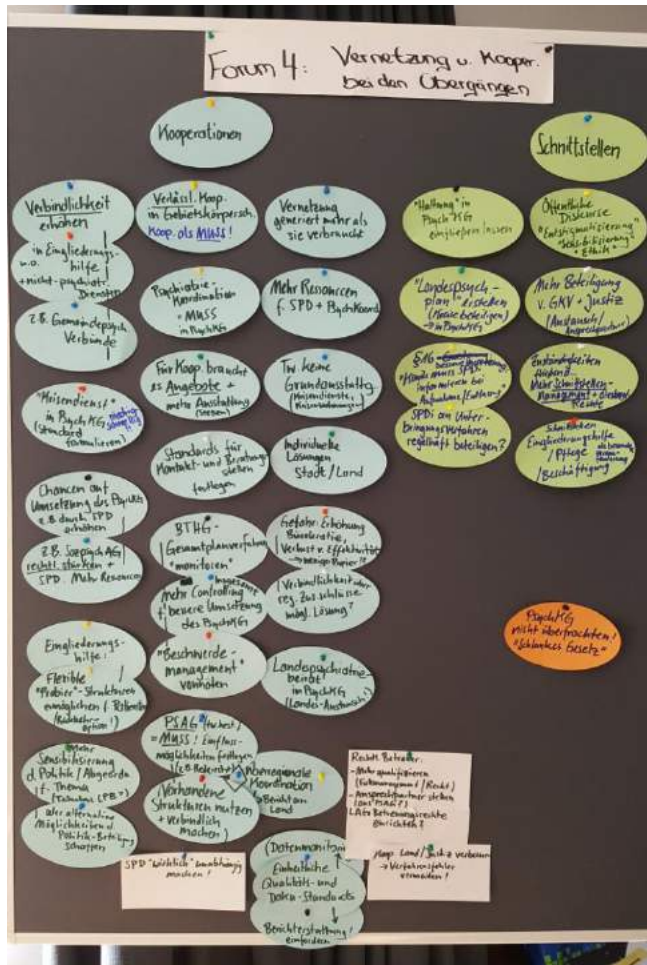 Forum 4: Vernetzung u. Kooper.
bei den Übergängen
Kooperationen
Schnittstellen
Verbindlichkeit
erhöhen
in Eingliederungs-
hilfe
u.a.
+ nicht-psychiatr.
Diensten
z.B. Gemeindepsych.
Verbünde
"Krisendienst"
in PsychKG
(Standard
formulieren)
Chancen auf
Umsetzung des PsychKG
z.B. durch SPD
erhöhen
z.B. SozpsychAG
rechtl. stärken +
SPD. Mehr Resourcen
Eingliederungs-
hilfe:
Flexible
"Probier"-Strukturen
ermöglichen f.
(Rückkehr-
option!)
Mehr
Sensibilisierung
d. Politik / Abgeordn.
f. Thema
aber alternative
Möglichkeiten d.
Politik-Beteiligung
schaffen
Verlässl. Koop.
in Gebietskörpersch.
Koop. als MUSS!
Psychiatrie-
Koordination
= MUSS
in PsychKG
Für Koop. braucht
es Angebote +
mehr Ausstattung
Standards für
Kontakt- und Beratungs-
stellen
festlegen
BTHG-
Gesamtplanverfahren
"monitoren"
insgesamt
Mehr Controlling
f. bessere Umsetzung
des PsychKG
"Beschwerde-
management"
vorhalten
PSAG
= MUSS! Einfluss-
möglichkeiten festlegen
Vorhandene
Strukturen nutzen
+ verbindlich
machen)
SPD "wirklich" unabhängig
machen!
Vernetzung
generiert mehr als
sie verbraucht
Mehr Ressourcen
f. SPD + PsychKoord
Tw keine
Grundausstattg.
Individuelle
Lösungen
Stadt / Land
Gefahr: Erhöhung
Bürokratie,
Verlust v. Effektivität
Verbindlichkeit über
reg. Zuschlüsse
mögl. Lösung?
Landespsychiatrie-
beirat
in PsychKG
(Landes-Austausch!)
Überregionale
Koordination
Bericht am
Land
(Datenmonitoring
Einheitliche
Qualitäts- und
Doku-Standards
Berichterstattung!
einfordern
"Haltung" in
PsychKG
einfließen lassen
"Landespsych-
plan" erstellen
(Kreise beteiligen)
→ in PsychKG
§16
informieren bei
Aufnahme/Entlassg.
SPDi an Unter-
bringungsverfahren
regelhaft beteiligen?
Öffentliche
Diskurse
"Entstigmatisierung"
"Sensibilisierung"
+ Ethik"
Mehr Beteiligung
v. GKV + Justiz
(Austausch/
Ansprechpartner)
Zuständigkeiten
Mehr Schnittstellen-
management
Rechte
Schnittstellen
Eingliederungshilfe
/ Pflege
/ Beschäftigung
PsychKG
nicht überfrachten!
"Schlankes Gesetz"
Rechtl. Betreuer:
- Mehr qualifizieren
- Ansprechpartner stellen
(aus PSAG?)
LAG Betreuungsrechte
einrichten?
Koop. Land / Justiz verbessern
→ Verfahrensfehler
vermeiden!